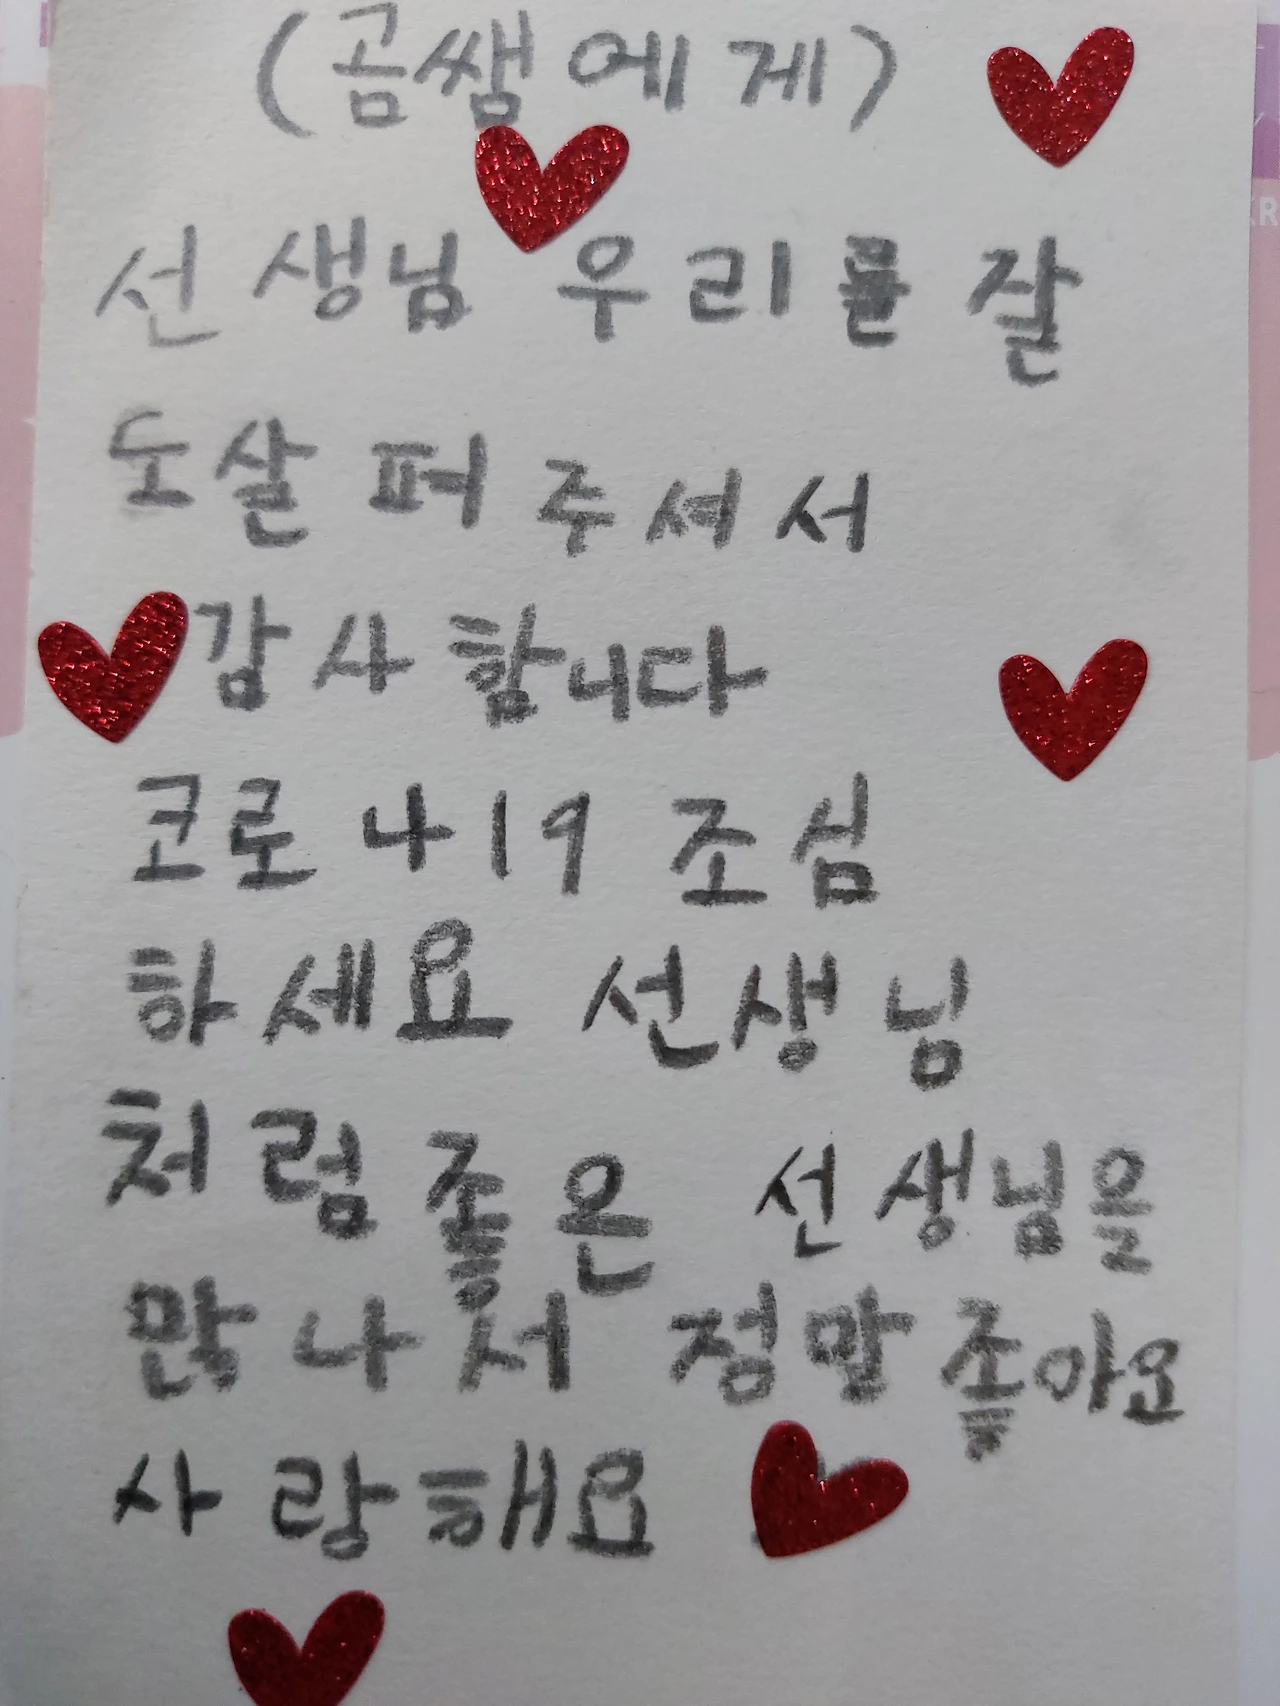 (곰쌤에게)
선생님 우리를 잘
도살퍼주셔서
감사합니다
코로나19 조심
하세요 선생님
처럼좋은 선생님을
많나서 정말좋아요
사랑해요